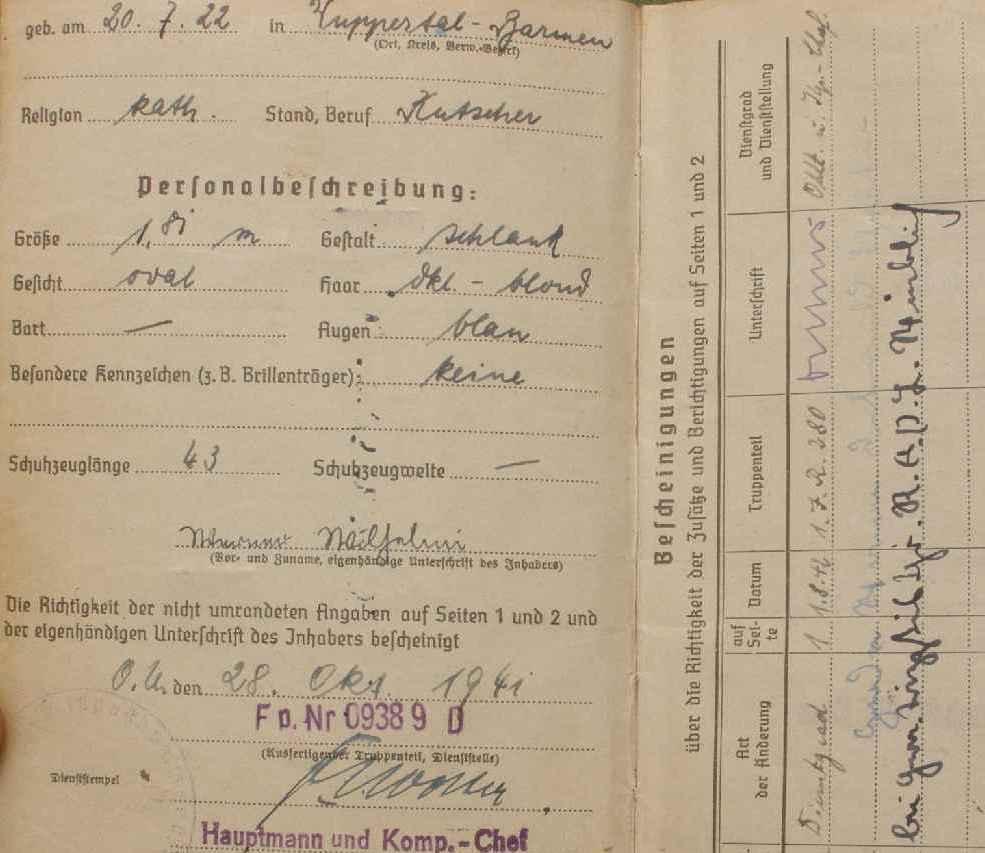 geb. am 20. 7. 22 in Wuppertal-Barmen
(Ort, Kreis, Verw.-Bezirk)
Religion kath. Stand, Beruf Kutscher
Personalbeschreibung:
Größe 1,81 m Gestalt schlank
Gesicht oval Haar dkl.-blond
Bart — Augen blau
Besondere Kennzeichen (z. B. Brillenträger): keine
Schuhzeuglänge 43 Schuhzeugweite —
Werner Wilhelmi
(Vor- und Zuname, eigenhändige Unterschrift des Inhabers)
Die Richtigkeit der nicht umrandeten Angaben auf Seiten 1 und 2 und
der eigenhändigen Unterschrift des Inhabers bescheinigt
O.U. den 28. Okt. 1941
Fp. Nr 09389 D
(Ausfertigender Truppenteil, Dienststelle)
Dienststempel
Hauptmann und Komp.-Chef
Bescheinigungen
über die Richtigkeit der Zusätze und Berichtigungen auf Seiten 1 und 2
Art der Änderung
auf Seite
Datum
Truppenteil
Unterschrift
Dienstgrad und Dienststellung
Dienstgrad 1 1.8.42